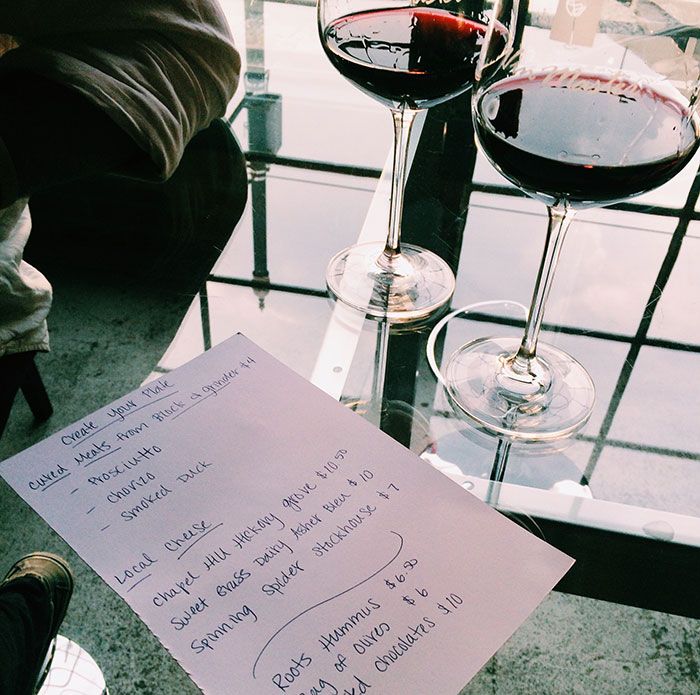 Create Your Plate
Cured Meats from Block & Grinder $4
- Prosciutto
- Chorizo
- Smoked Duck
Local Cheese
Chapel Hill Hickory Grove $10.50
Sweet Grass Dairy Asher Bleu $10
Spinning Spider Stackhouse $7
Roots Hummus $6.50
Bag of Olives $6
chocolates $10